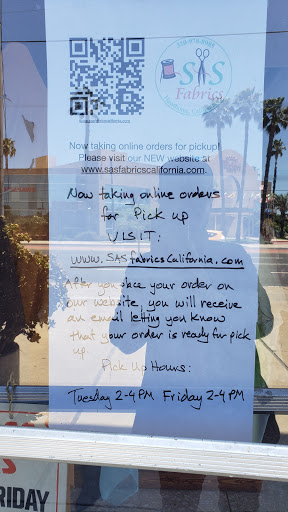 SAS
Fabrics
Now taking online orders for pickup!
Please visit our NEW website at
www.sasfabricscalifornia.com.
Now taking online orders
for Pick up
VISIT:
www.SASfabricsCalifornia.com
After you place your order on
our website, you will receive
an email letting you know
that your order is ready for pick
up.
Pick Up Hours:
Tuesday 2-4 PM Friday 2-4 PM
RIDAY